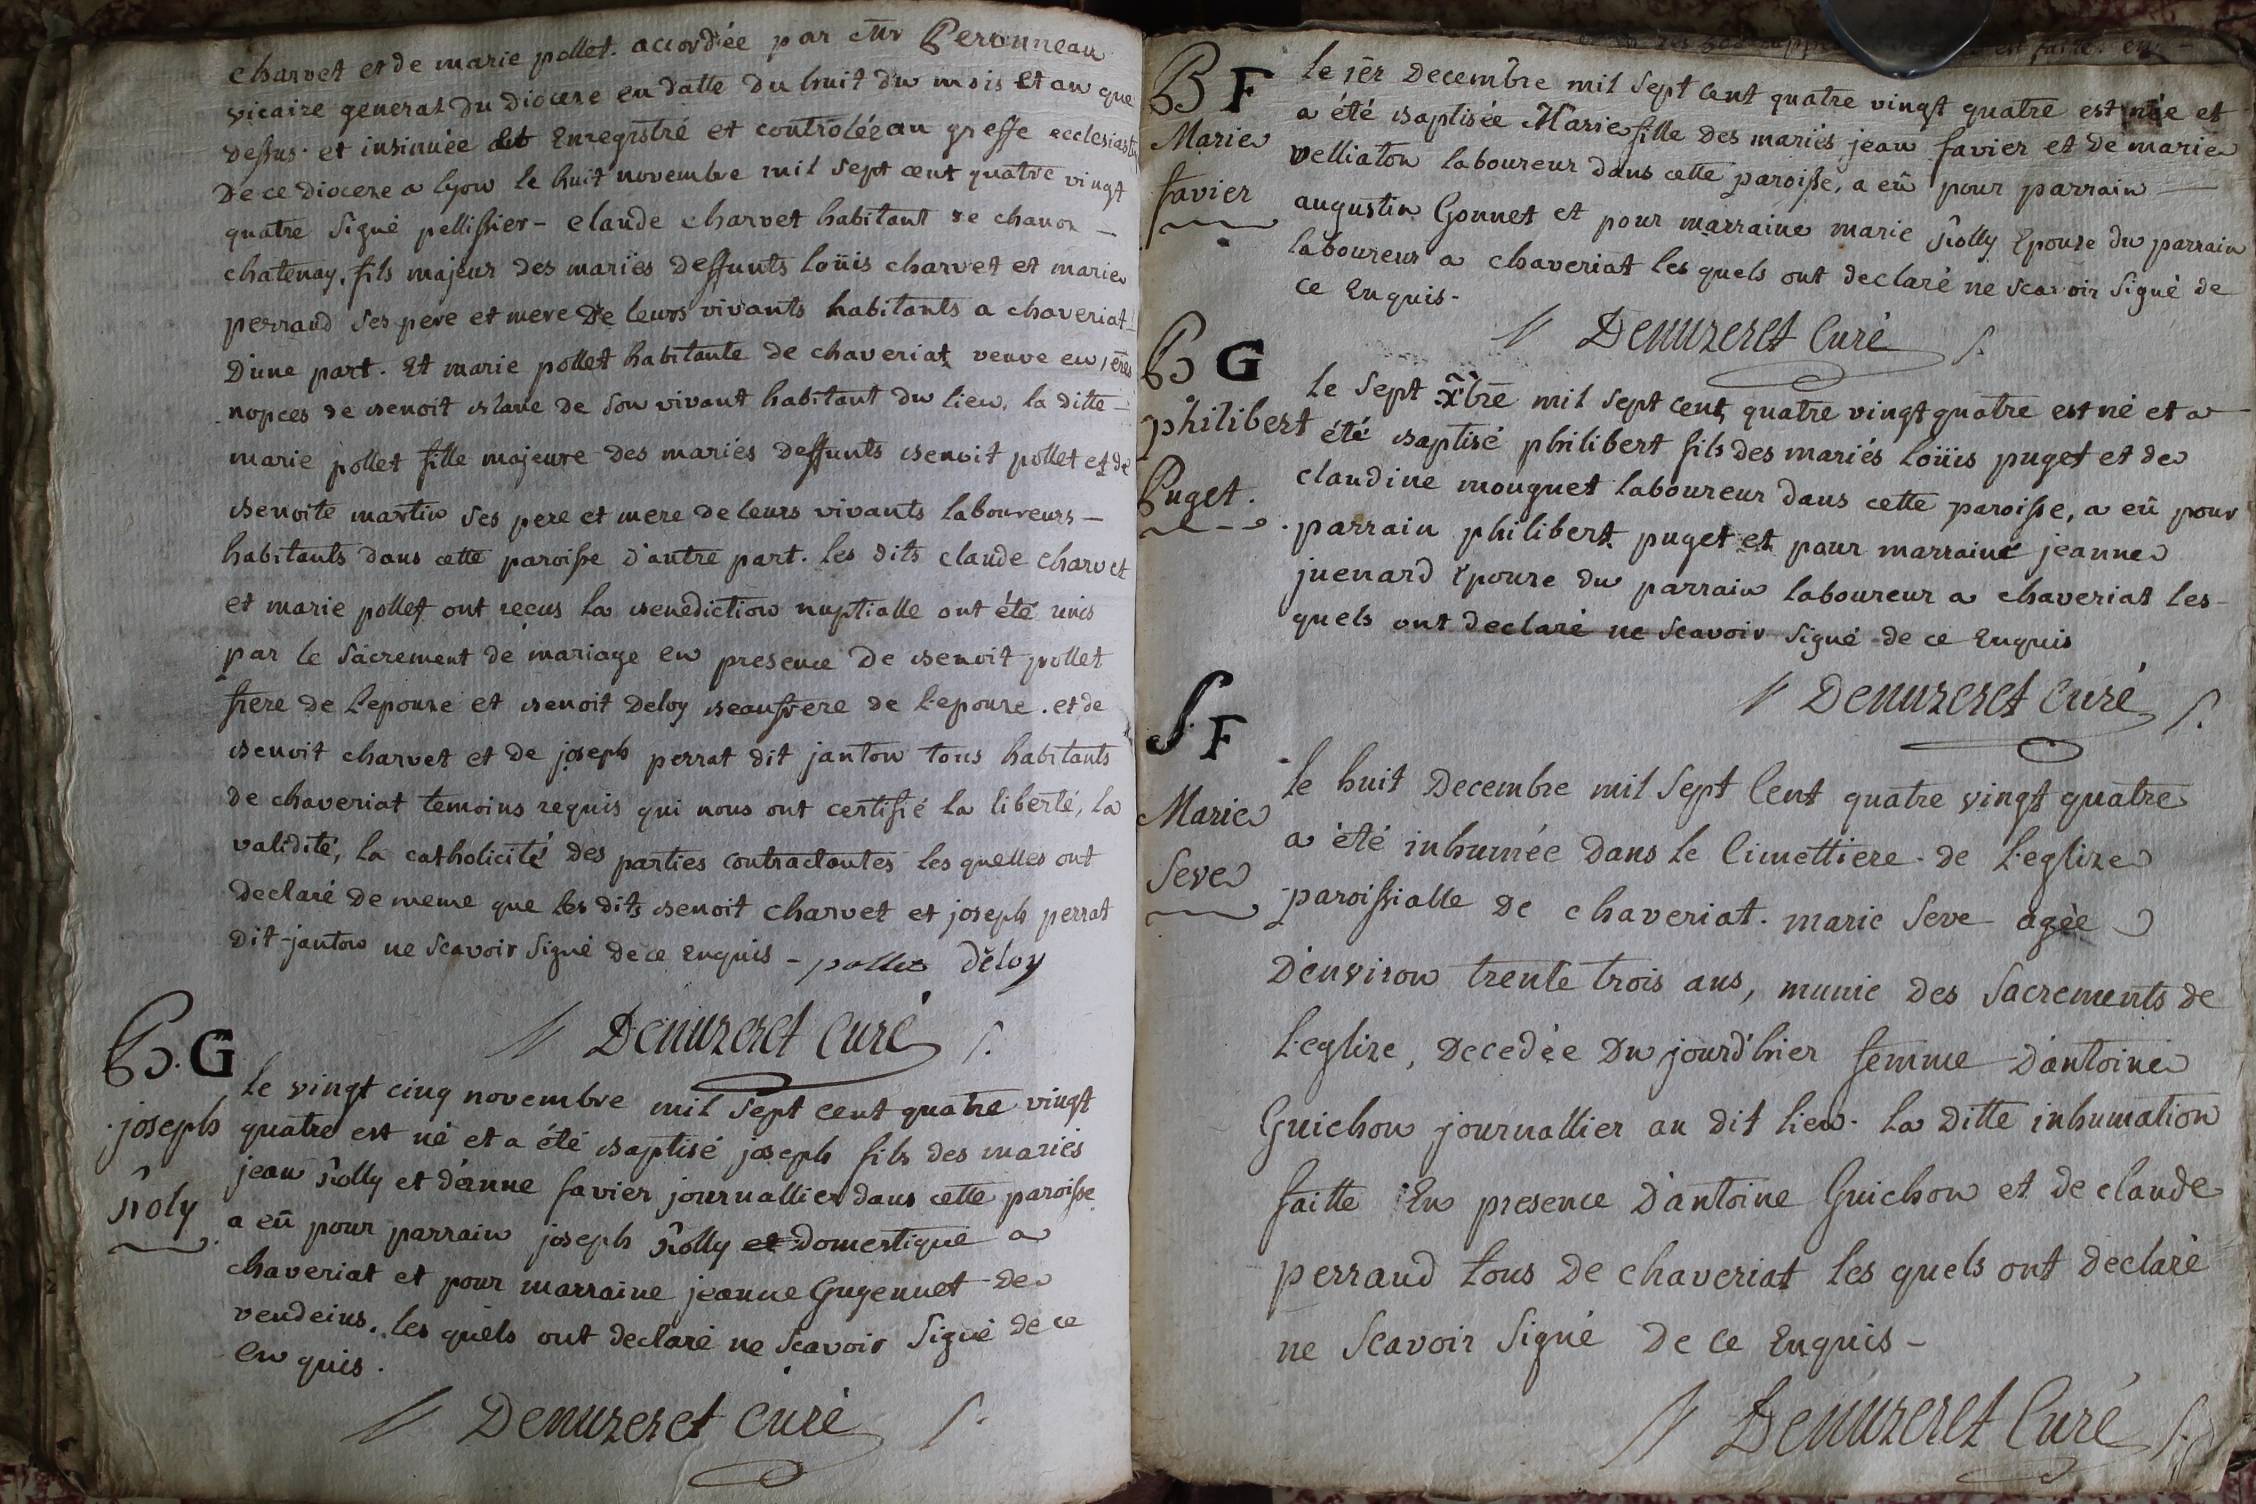 charvet et de marie pollet. accordée par Mr Peronneau
vicaire general du diocese en datte du huit du mois et an que
dessus. et insinuée et Enregistré et controlée au greffe ecclesiasti
de ce diocese a lyon le huit novembre mil sept cent quatre vingt
quatre signé pellissier - claude charvet habitant de chanoz -
chatenay, fils majeur des mariés deffunts loüis charvet et marie
perraud ses pere et mere de leurs vivants habitants a chaveriat -
d'une part. Et marie pollet habitante de chaveriat veuve en 1eres
nopces de benoit blanc de son vivant habitant du lieu, la ditte -
marie pollet fille majeure des mariés deffunts benoit pollet et de
benoite martin ses pere et mere de leurs vivants laboureurs -
habitants dans cette paroisse d'autre part. les dits claude charvet
et marie pollet ont reçus la benediction nuptialle ont été unis
par le sacrement de mariage en presence de benoit pollet
frere de l'epouse et benoit deloy beaufrere de l'epouse. et de
benoit charvet et de joseph perrat dit janton tous habitants
de chaveriat temoins requis qui nous ont certifié la liberté, la
validité, la catholicité des parties contractantes les quelles ont
declaré de meme que les dits benoit charvet et joseph perrat
dit janton ne scavoir signé de ce Enquis - pollet déloy
Denuzeret Curé
B. G
joseph
Roly
le vingt cinq novembre mil sept cent quatre vingt
quatre est né et a été baptisé joseph fils des mariés
jean Rolly et d'enne favier journallier dans cette paroisse
a eû pour parrain joseph Rolly et domestique a
chaveriat et pour marraine jeanne Guyennet de
vendeins. les quels ont declaré ne scavoir signé de ce
en quis.
Denuzeret Curé
B F
Marie
favier
le 1er Decembre mil sept cent quatre vingt quatre est née et
a été baptisée Marie fille des mariés jean favier et de marie
velliaton laboureur dans cette paroisse, a eû pour parrain -
augustin Gonnet et pour marraine marie Rolly Epouse du parrain
laboureur a chaveriat les quels ont declaré ne scavoir signé de
ce Enquis -
Denuzeret Curé
B G
philibert
Puget.
le sept Xbre mil sept cent quatre vingt quatre est né et a
été baptisé philibert fils des mariés loüis puget et de
claudine monguet laboureur dans cette paroisse, a eû pour
parrain philibert puget et pour marraine jeanne
juenard Epouse du parrain laboureur a chaveriat les -
quels ont declaré ne scavoir signé de ce Enquis
Denuzeret Curé
S. F
Marie
Seve
le huit Decembre mil sept Cent quatre vingt quatre
a été inhumée dans le Cimettiere de l'eglize
paroissialle de chaveriat. marie seve agée
d'environ trente trois ans, munie des sacrements de
l'eglize, decedée du jourd'hier femme d'antoine
Guichon journallier au dit lieu. la ditte inhumation
faitte En presence d'antoine Guichon et de claude
perraud tous de chaveriat les quels ont declaré
ne scavoir signé de ce Enquis -
Denuzeret Curé